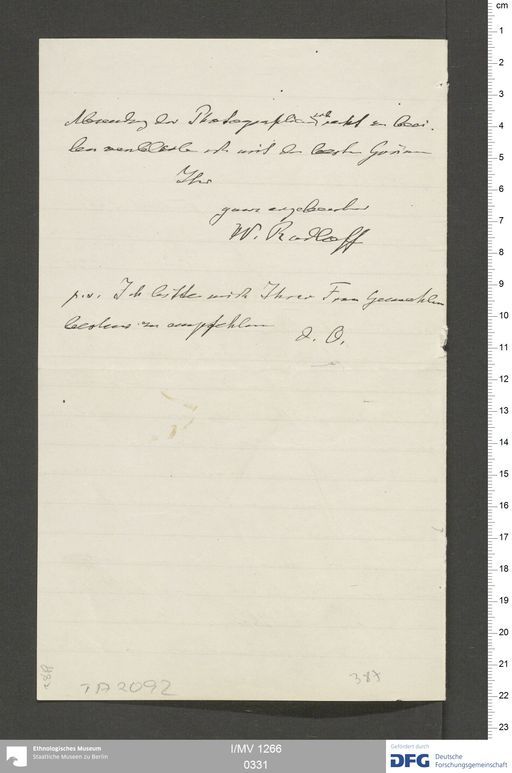 Absendung der Photographien recht zu beei-
len verbleibe ich mit den besten Grüssen
Ihr
ganz ergebenster
W. Radloff
p.s. Ich bitte mich Ihrer Frau Gemahlin
bestens zu empfehlen
d. O.
TA 2092
387
cm
1
2
3
4
5
6
7
8
9
10
11
12
13
14
15
16
17
18
19
20
21
22
23
Ethnologisches Museum
Staatliche Museen zu Berlin
I/MV 1266
0331
Gefördert durch
DFG Deutsche
Forschungsgemeinschaft